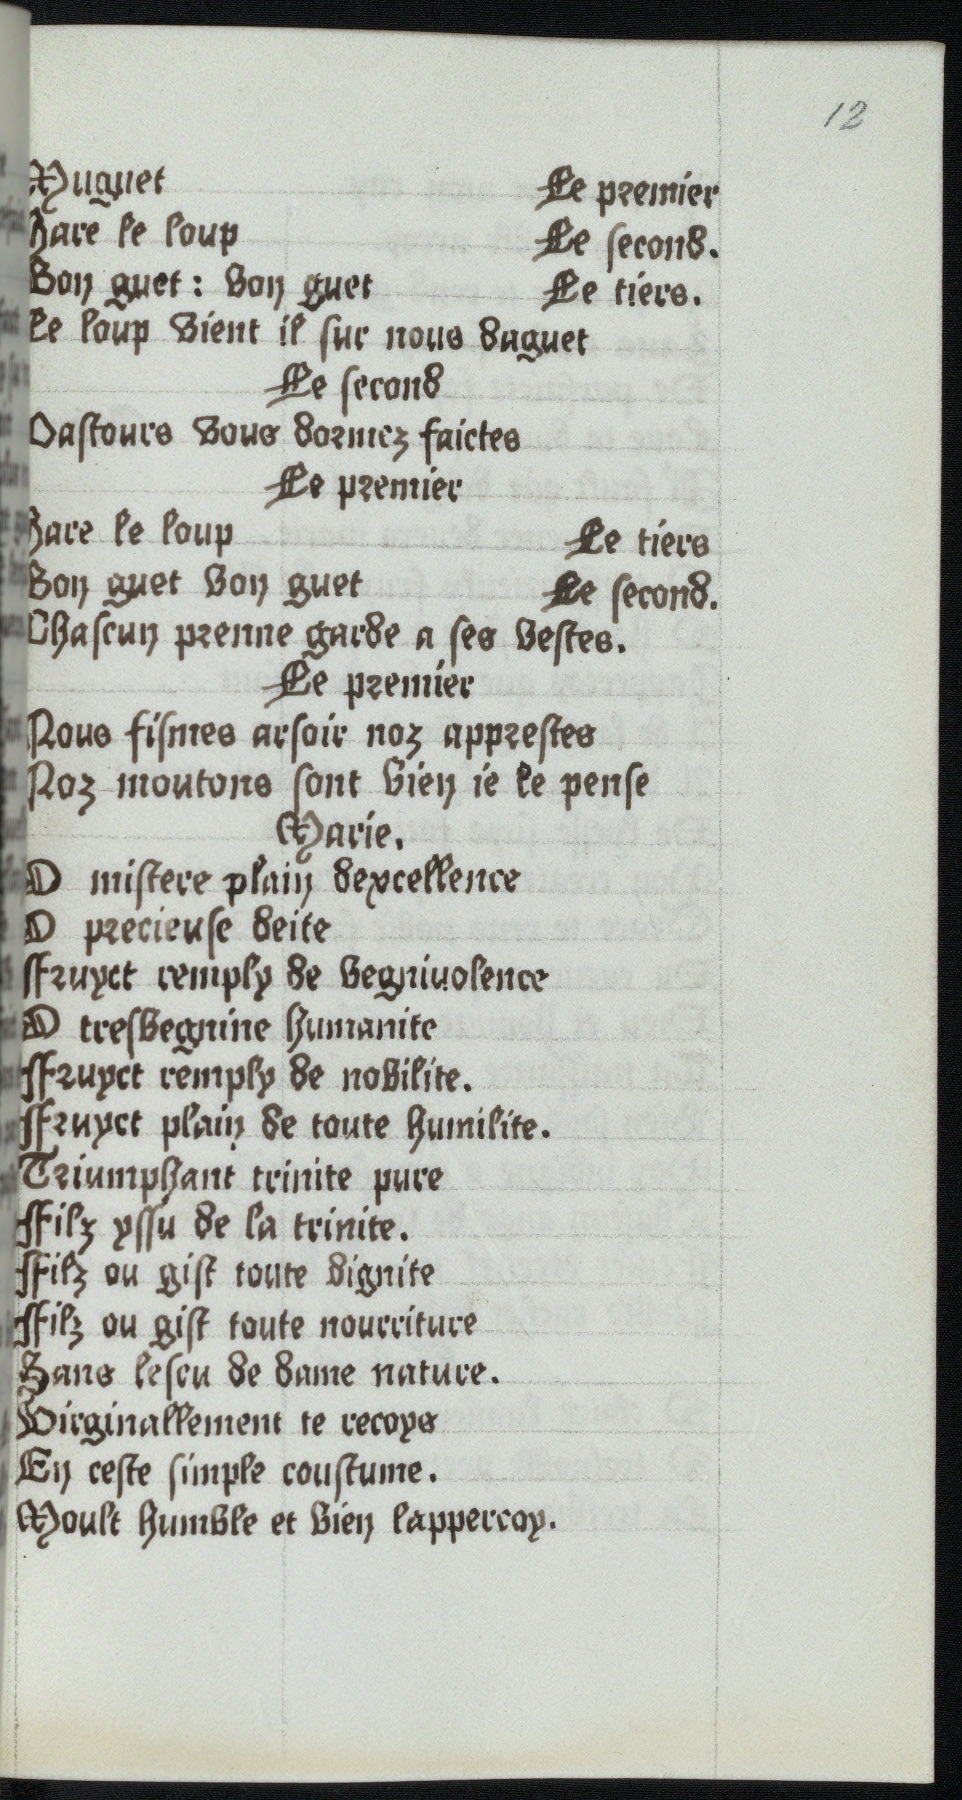 12
Muguet Le premier
Hare le loup Le second.
Bon guet : bon guet Le tiers.
Le loup vient il sur nous daguet
Le second
Pastours vous dormez faictes
Le premier
Hare le loup Le tiers
Bon guet bon guet Le second.
Chascun prenne garde a ses bestes.
Le premier
Nous fismes arsoir noz apprestes
Noz moutons sont bien ie le pense
Marie.
O mistere plain dexcellence
O precieuse deite
ffruyct remply de begniuolence
O tresbegnine humanite
ffruyct remply de nobilite.
ffruyct plain de toute humilite.
Triumphant trinite pure
ffilz yssu de la trinite.
ffilz ou gist toute dignite
ffilz ou gist toute nourriture
Sans lescu de dame nature.
Virginallement te recoys
En ceste simple coustume.
Moult humble et bien lappercoy.